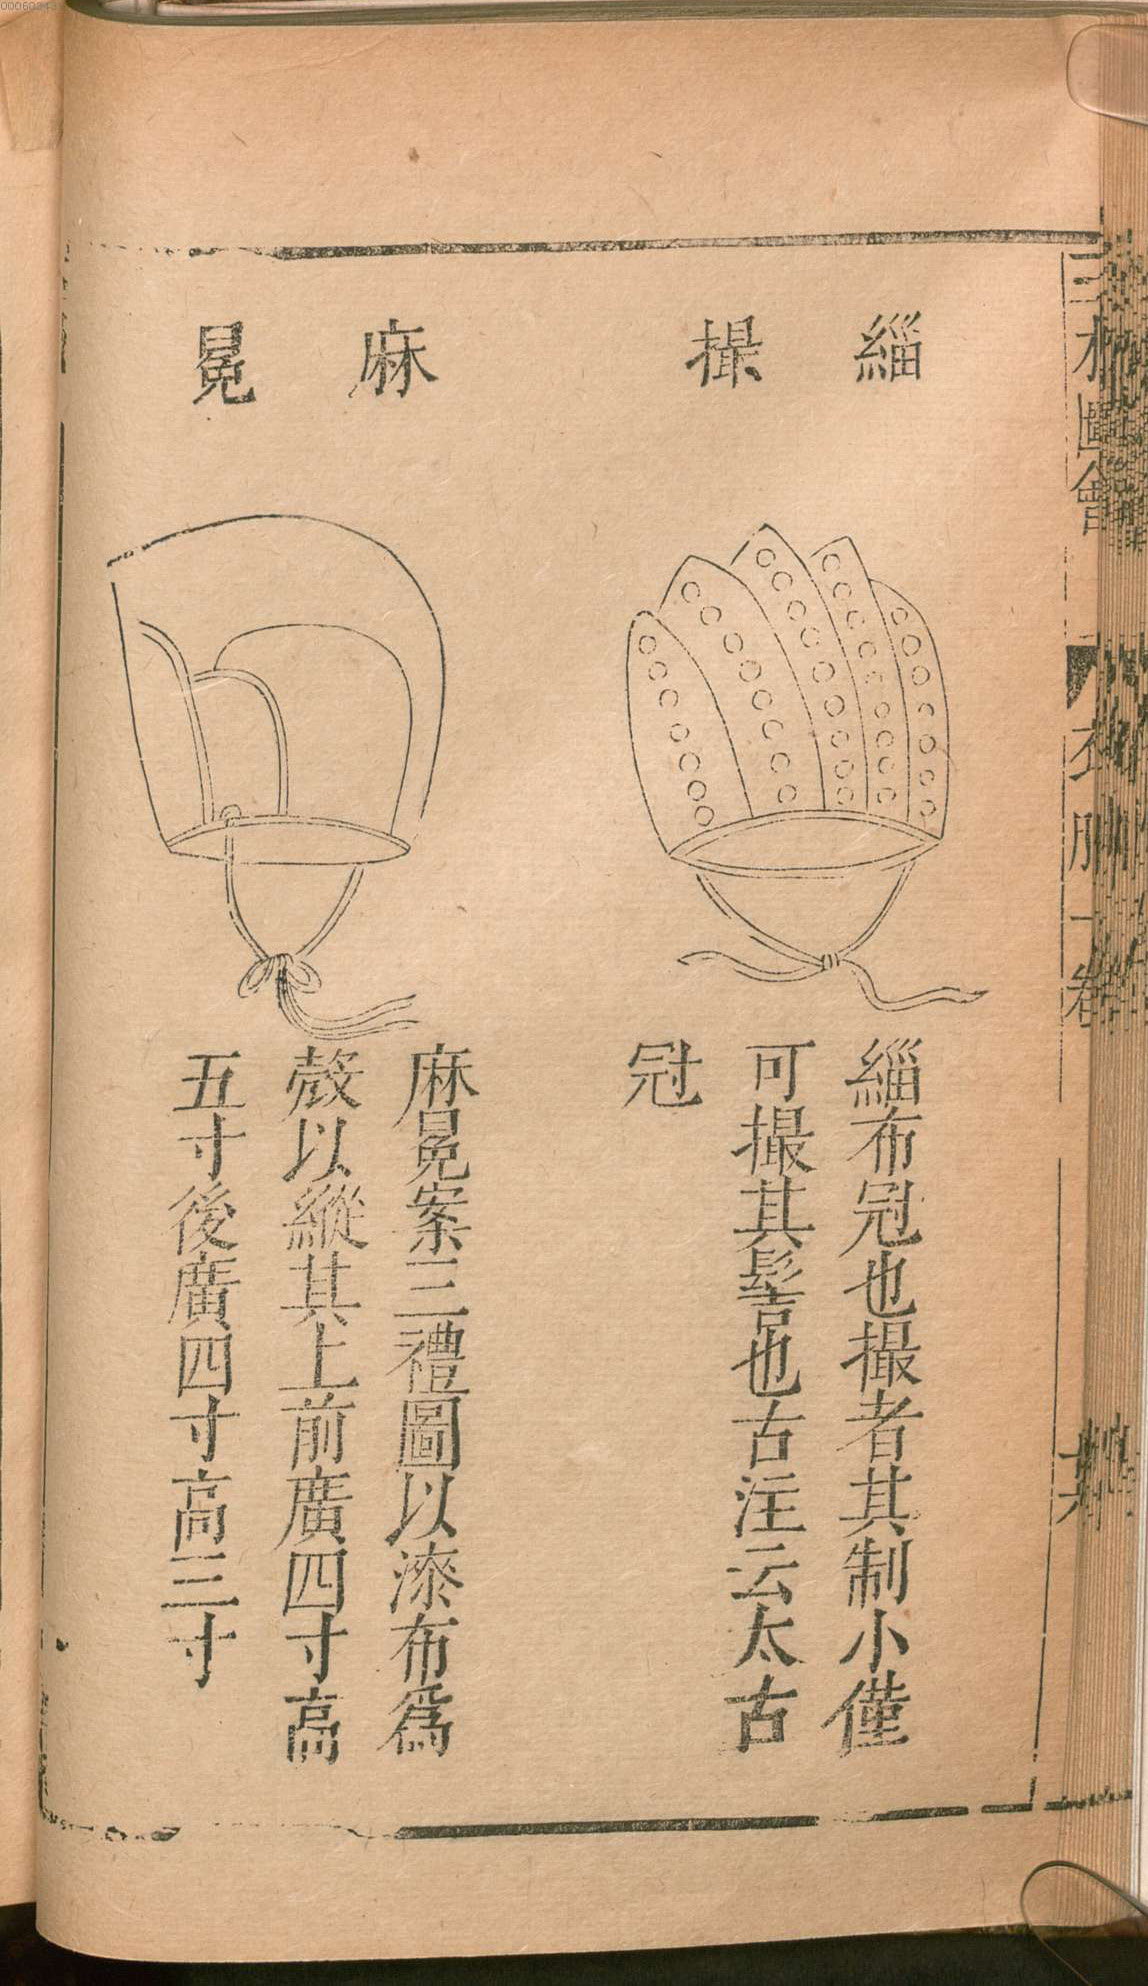 三才圖會
衣服一卷
緇撮
緇布冠也撮者其制小僅
可撮其髻也古注云太古
冠
麻冕
麻冕案三禮圖以漆布為
殼以縱其上前廣四寸高
五寸後廣四寸高三寸